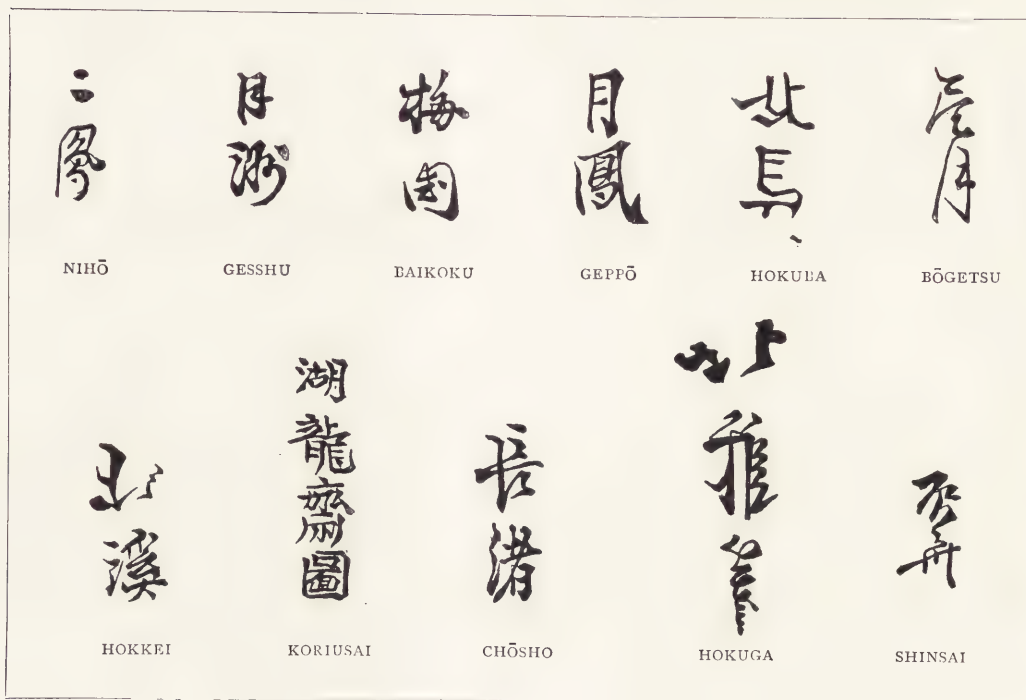 二鳳
NIHŌ
月洲
GESSHU
梅國
BAIKOKU
月鳳
GEPPŌ
北馬
HOKUBA
月
BŌGETSU
北溪
HOKKEI
湖龍齋圖
KORIUSAI
長渚
CHŌSHO
北雅筆
HOKUGA
SHINSAI